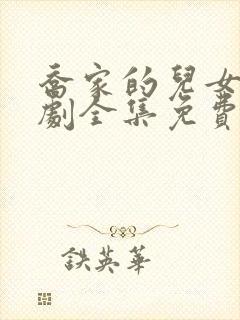 喬家的兒女
劇全集免費
鉄英華